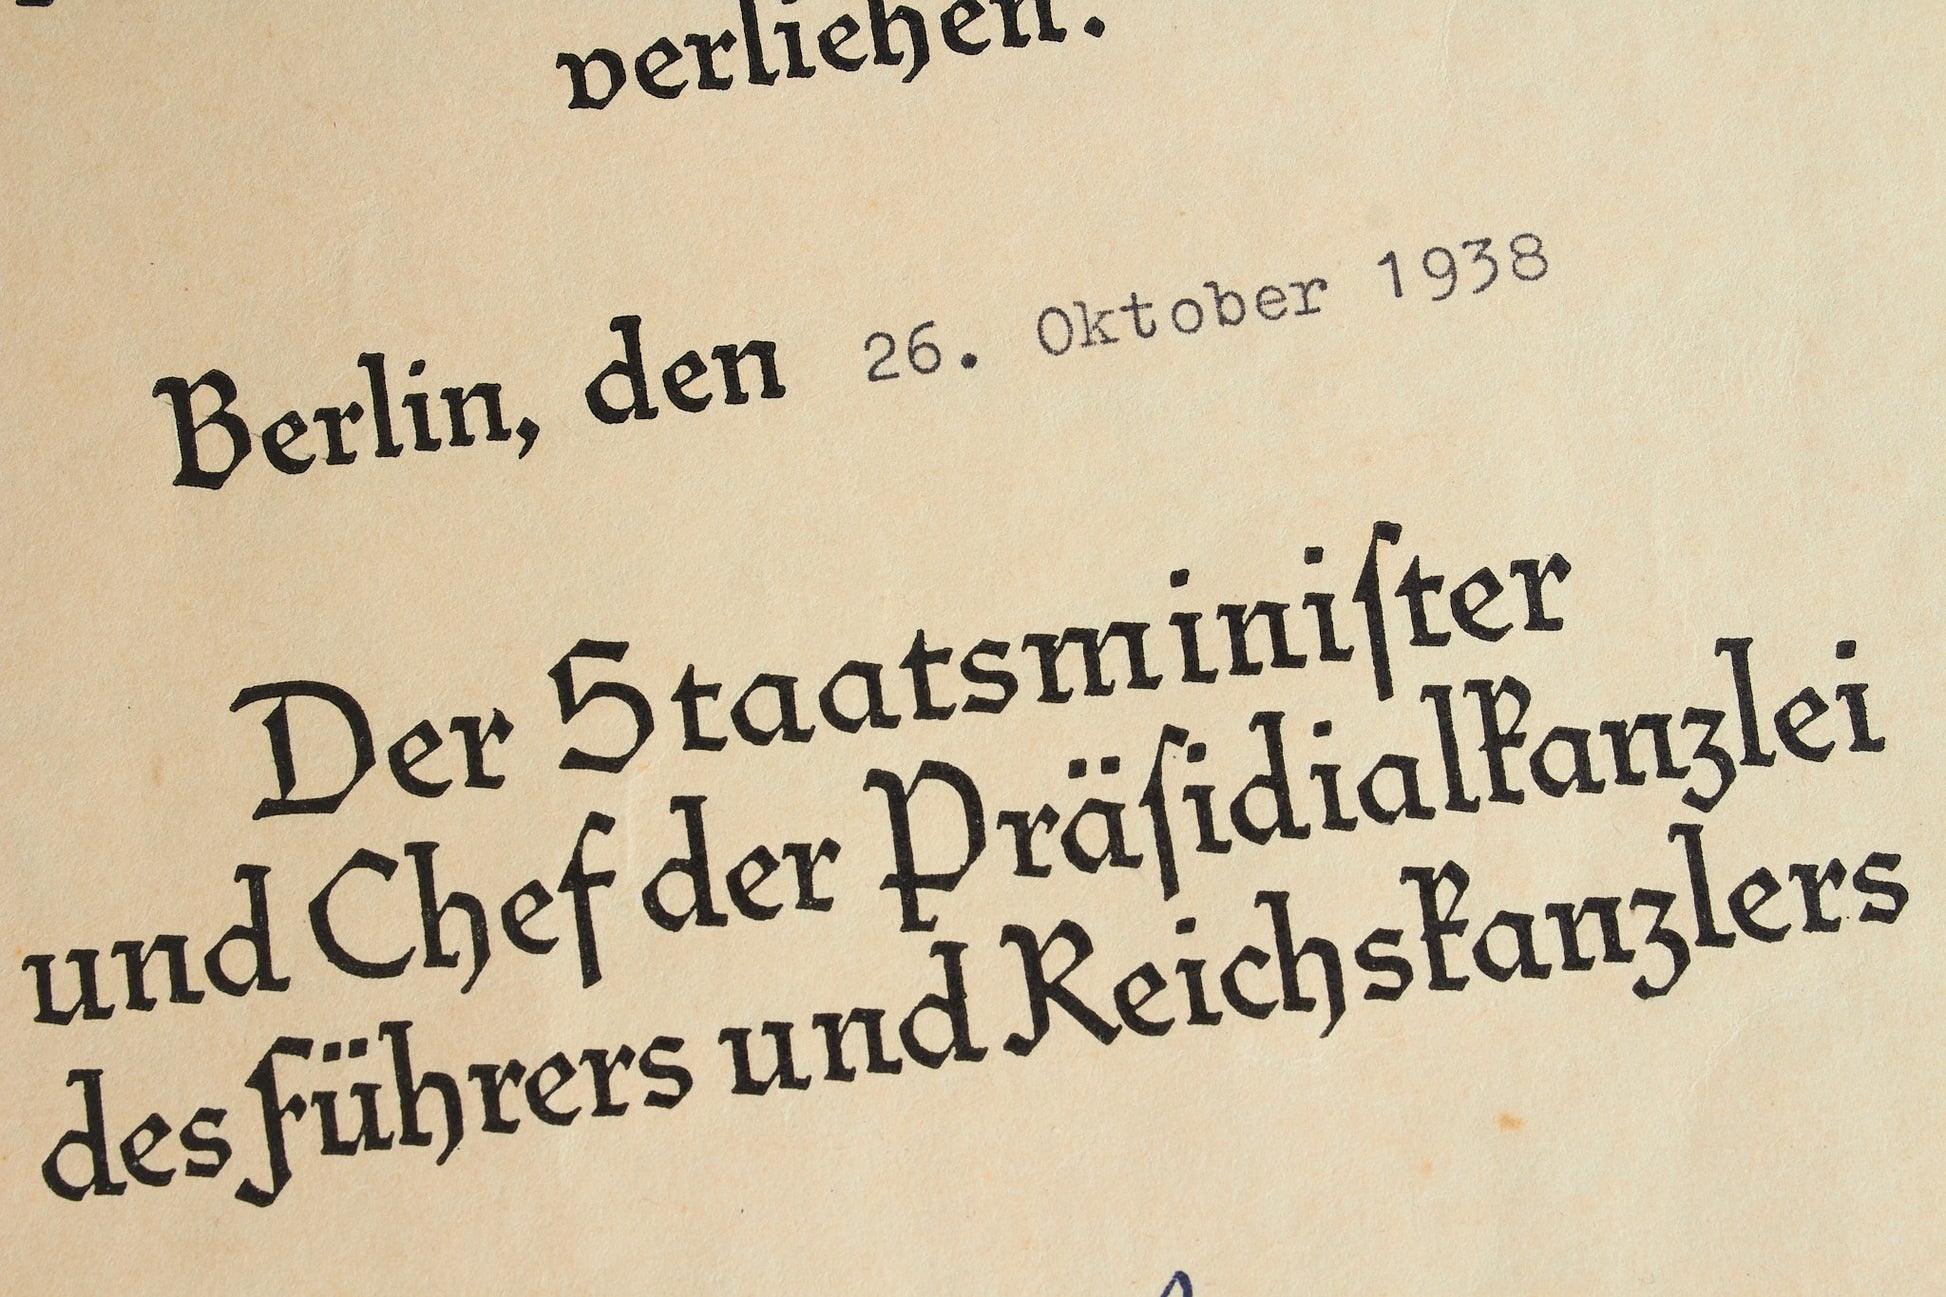 verliehen.
Berlin, den 26. Oktober 1938
Der Staatsminiſter
und Chef der Präſidialkanzlei
des Führers und Reichskanzlers